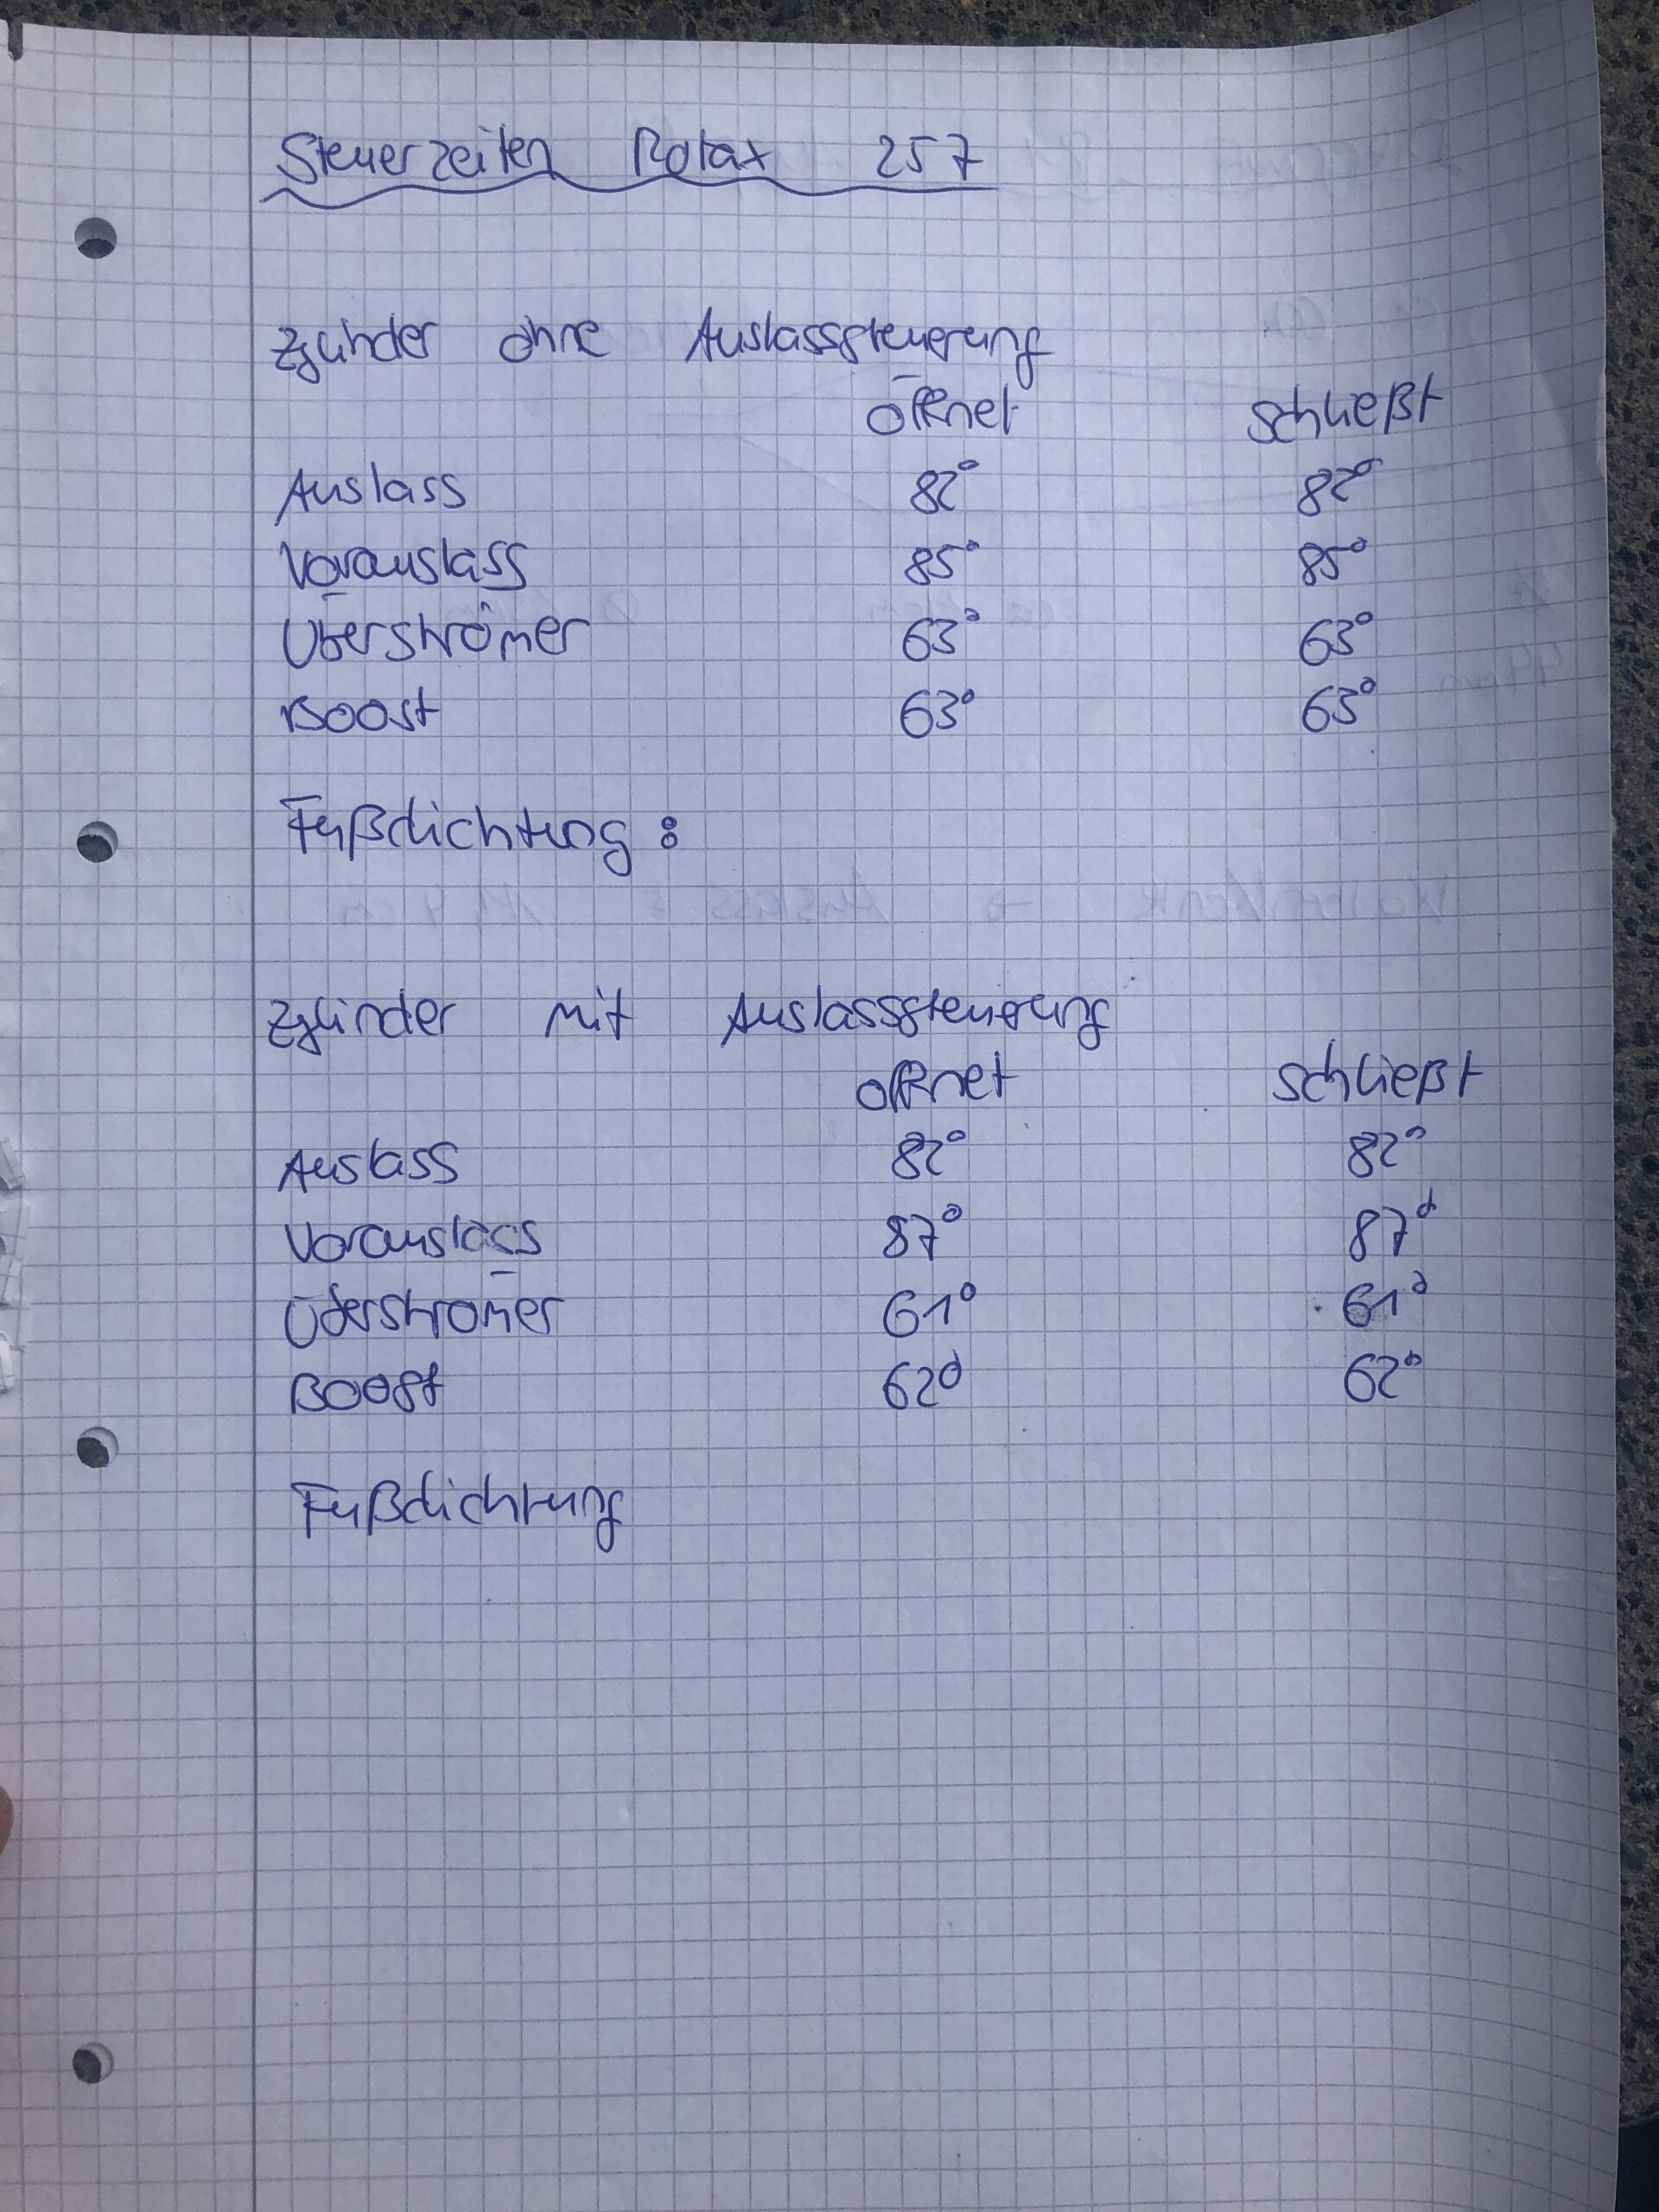 Steuerzeiten Rotax 257
Zylinder ohne Auslasssteuerung
öffnet schließt
Auslass 82° 82°
Vorauslass 85° 85°
Überströmer 63° 63°
Boost 63° 63°
Fußdichtung:
Zylinder mit Auslasssteuerung
öffnet schließt
Auslass 82° 82°
Vorauslass 87° 87°
Überströmer 61° 61°
Boost 62° 62°
Fußdichtung